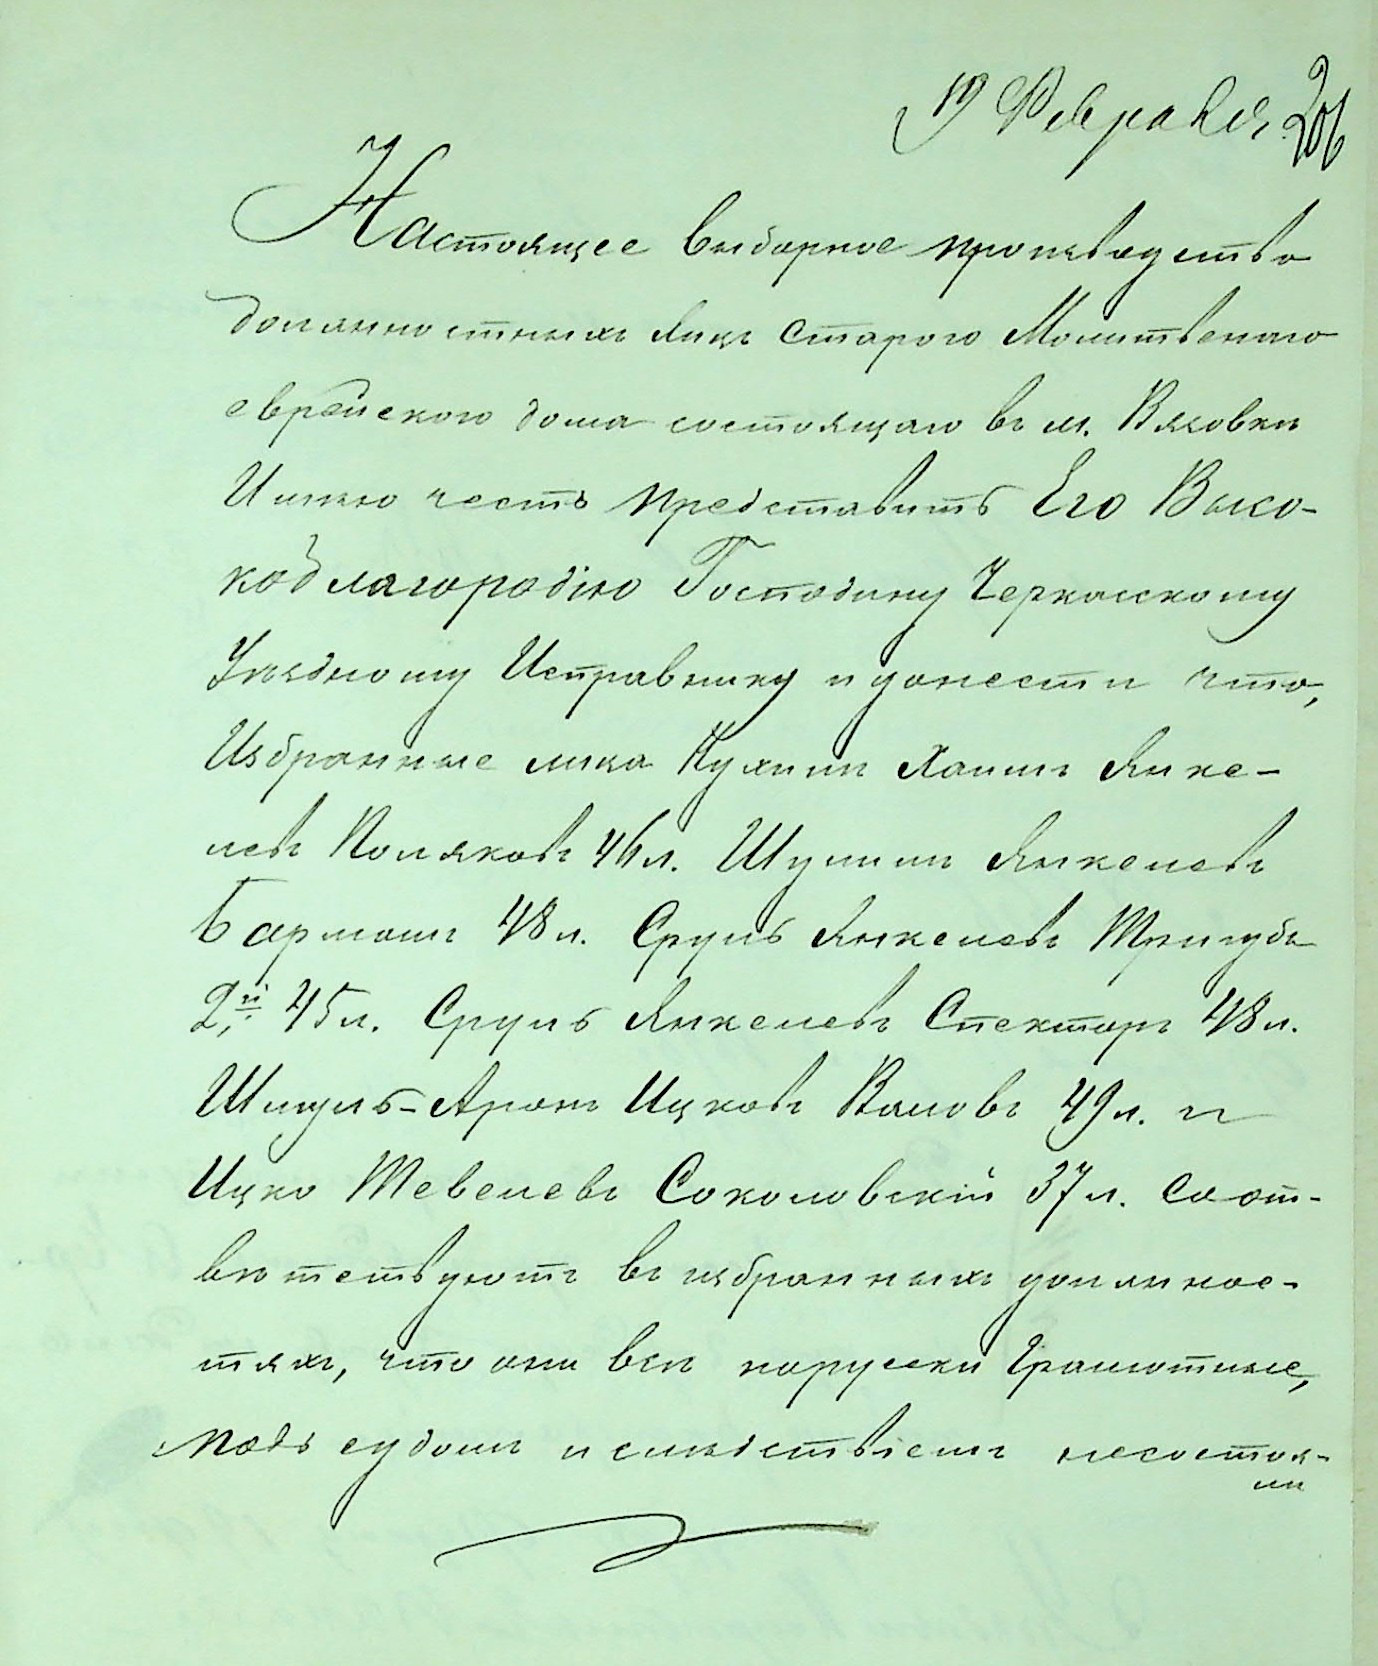 19 Февраля 206
Настоящее выборное производство
должностныхъ лицъ старого Молитвенаго
еврейского дома состоящаго въ м. Вязовкѣ
Имѣю честь представить Его Высо-
коблагородію Господину Черкасскому
Уѣздному Исправнику и донести что,
Избранные лица Нухимъ Хаимъ Янке-
левъ Поляковъ 46 л. Шулимъ Янкелевъ
Барманъ 48 л. Сруль Янкелевъ Тригубъ
2й. 45 л. Сруль Янкелевъ Спекторъ 48 л.
Шмуль-Аронъ Ицковъ Валовъ 49 л. и
Ицко Тевелевъ Соколовскій 37 л. соот-
вѣтствуютъ въ избранныхъ должнос-
тяхъ, что они всѣ порусски Грамотные,
подъ судомъ и слѣдствіемъ несостоя-
ли